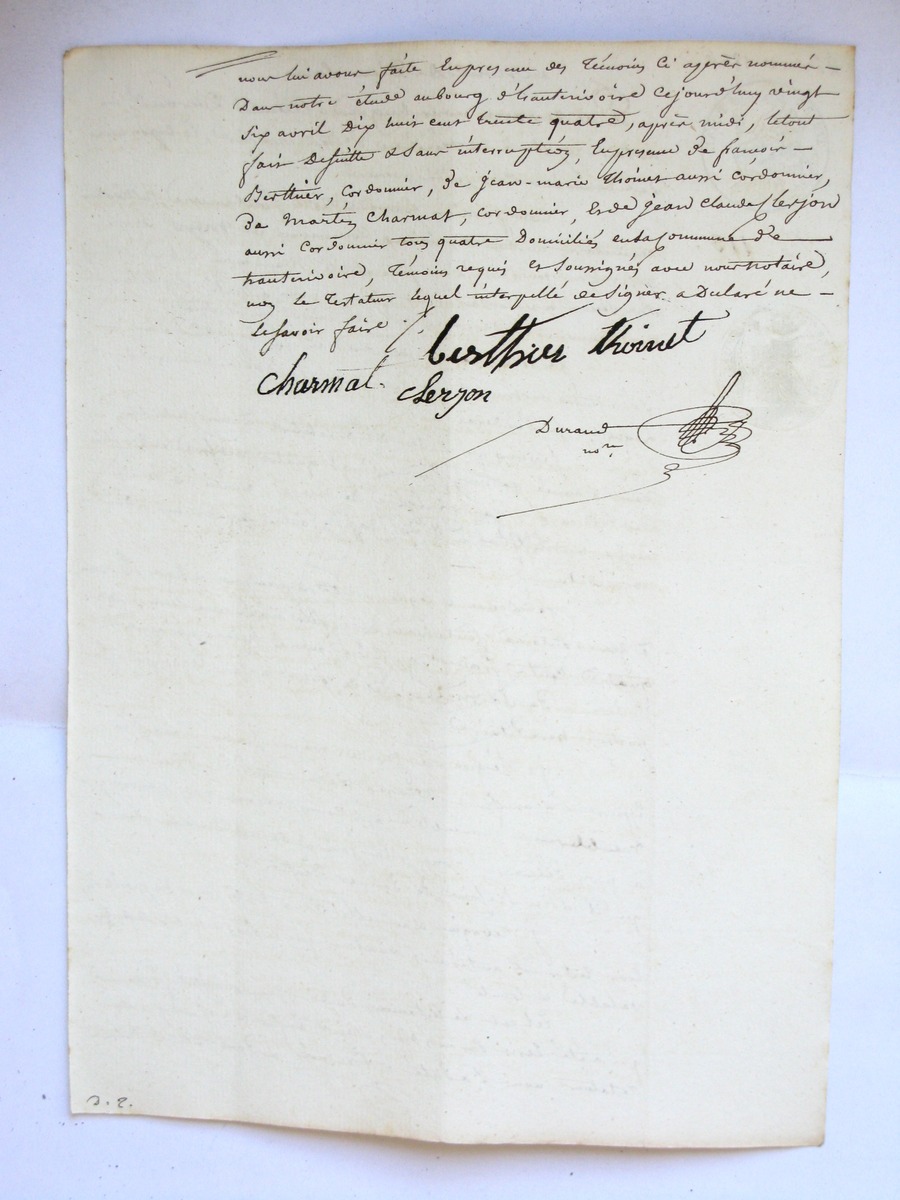 nous lui avons faite En presence des Témoins Ci après nommés —
Dans notre étude au bourg d'hauterivoire Cejourd'huy vingt
Six avril Dix huit cent trente quatre, après midi, letout
fait Desuitte & Sans interruption, En presence de françois —
Berthier, Cordonnier, De jean-marie thoinet aussi Cordonnier,
De Martin Charmat, Cordonnier, Et de jean Claude Clerjon
aussi Cordonnier tous quatre Domiciliés en la Commune de
hauterivoire, Témoins requis Et Soussignés avec nous notaire,
non le Testateur lequel interpellé de Signer a Declaré ne —
le Savoir faire ./.
berthier thoinet
Charmat. Clerjon
Durand
nore
D. 2.